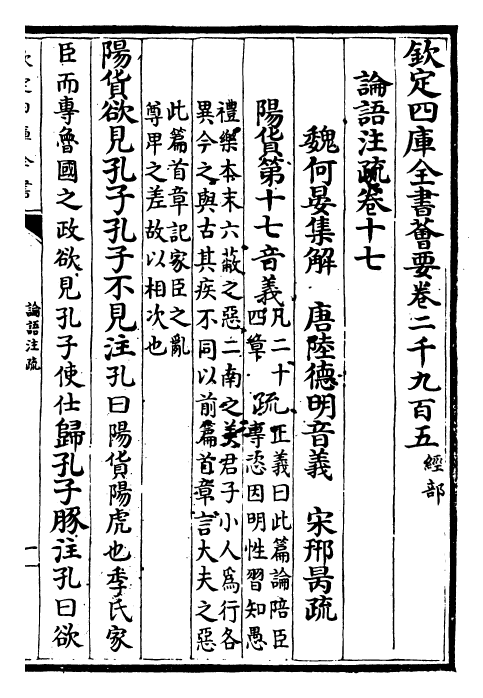 欽定四庫全書薈要卷二千九百五 經部
論語注疏卷十七
魏何晏集解 唐陸德明音義 宋邢昺疏
陽貨第十七音義凡二十
四章疏正義曰此篇論陪臣
專恣因明性習知愚
禮樂本末六蔽之惡二南之美君子小人為行各
異今之與古其疾不同以前篇首章言大夫之惡
此篇首章記家臣之亂
尊卑之差故以相次也
陽貨欲見孔子孔子不見注孔曰陽貨陽虎也季氏家
臣而專魯國之政欲見孔子使仕歸孔子豚注孔曰欲
論語注疏
一